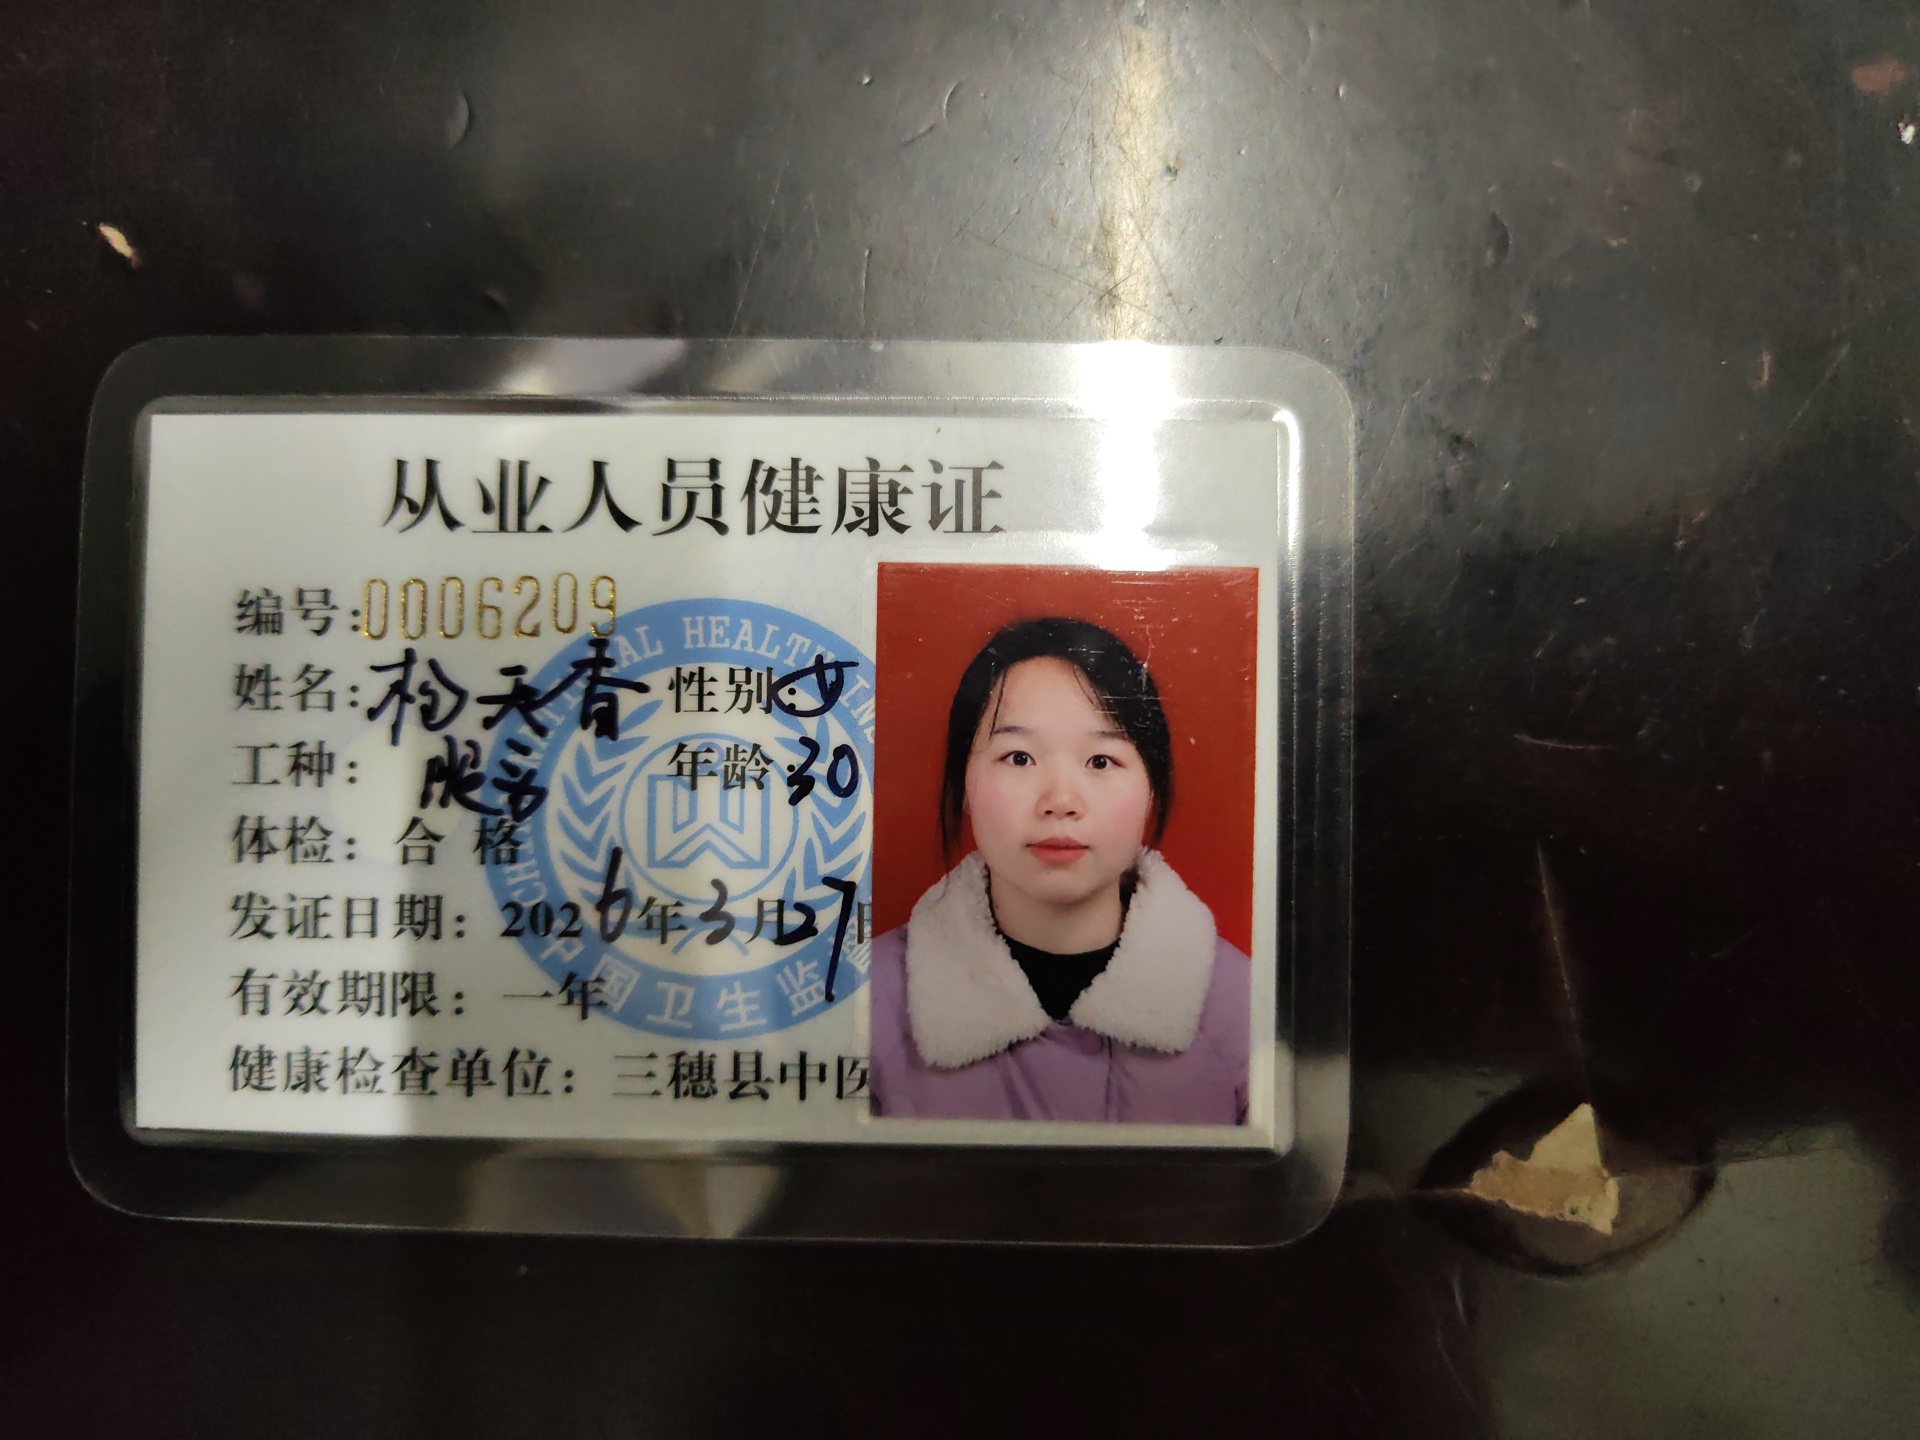 从业人员健康证
编号:0006209
姓名:杨天香 性别:女
工种:服务 年龄:30
体检:合格
发证日期:2026年3月27日
有效期限:一年
健康检查单位:三穗县中医
HEALTH
中国卫生监督